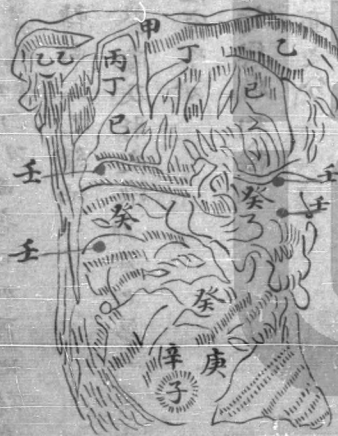 甲
乙乙
丙
丁
丁
乙
己
己
壬
壬
癸
壬
癸
壬
癸
辛
庚
子